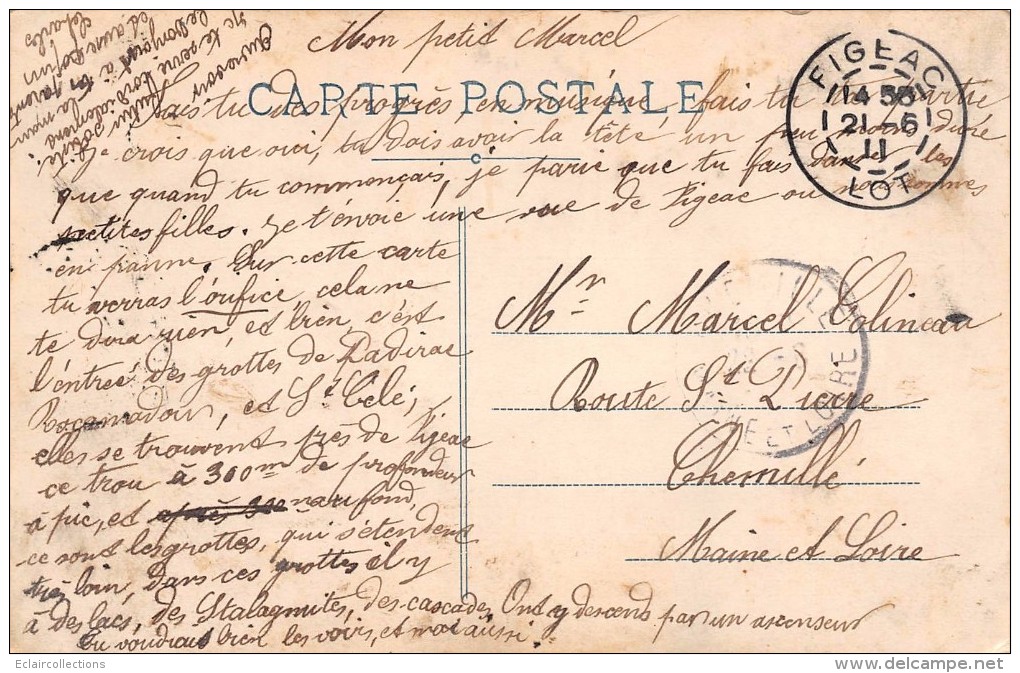 Mon petit Marcel
CARTE POSTALE
FIGEAC
14 56
21-6
11
LOT
fais tu des progrès en musique, fais tu
Je crois que oui, tu dois avoir la tête un peu moins dure
que quand tu commençais, je parie que tu fais danser les
petites filles. Je t'envoie une vue de Figeac ou nous sommes
en panne. Sur cette carte
tu verras l'orifice, cela ne
te dira rien, et bien c'est
l'entrée des grottes de Padirac
Rocamadour, et St Célé,
elles se trouvent près de Figeac
ce trou à 300m de profondeur
à pic, et au fond,
ce sont les grottes, qui s'étendent
très loin, dans ces grottes il y
à des lacs, des Stalagmites, des cascades, Ont y descend par un ascenseur
tu voudrais bien les voir, et moi aussi.
Mr Marcel Colineau
Route St Pierre
Chemillé
Maine et Loire
ET LOIRE
Charles
Eclaircollections
delcampe.net